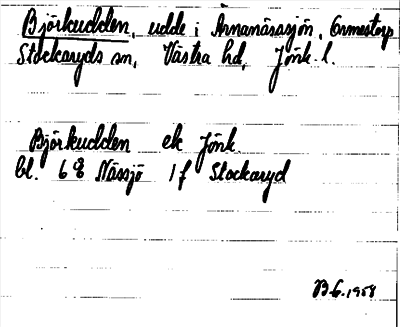 Björkudden, udde i Arnanäsasjön, Ormestorp
Stockaryds sn, Västra hd, Jönk. l.
Björkudden ek Jönk
bl. 68 Nässjö 1 f Stockaryd
B.G. 1958